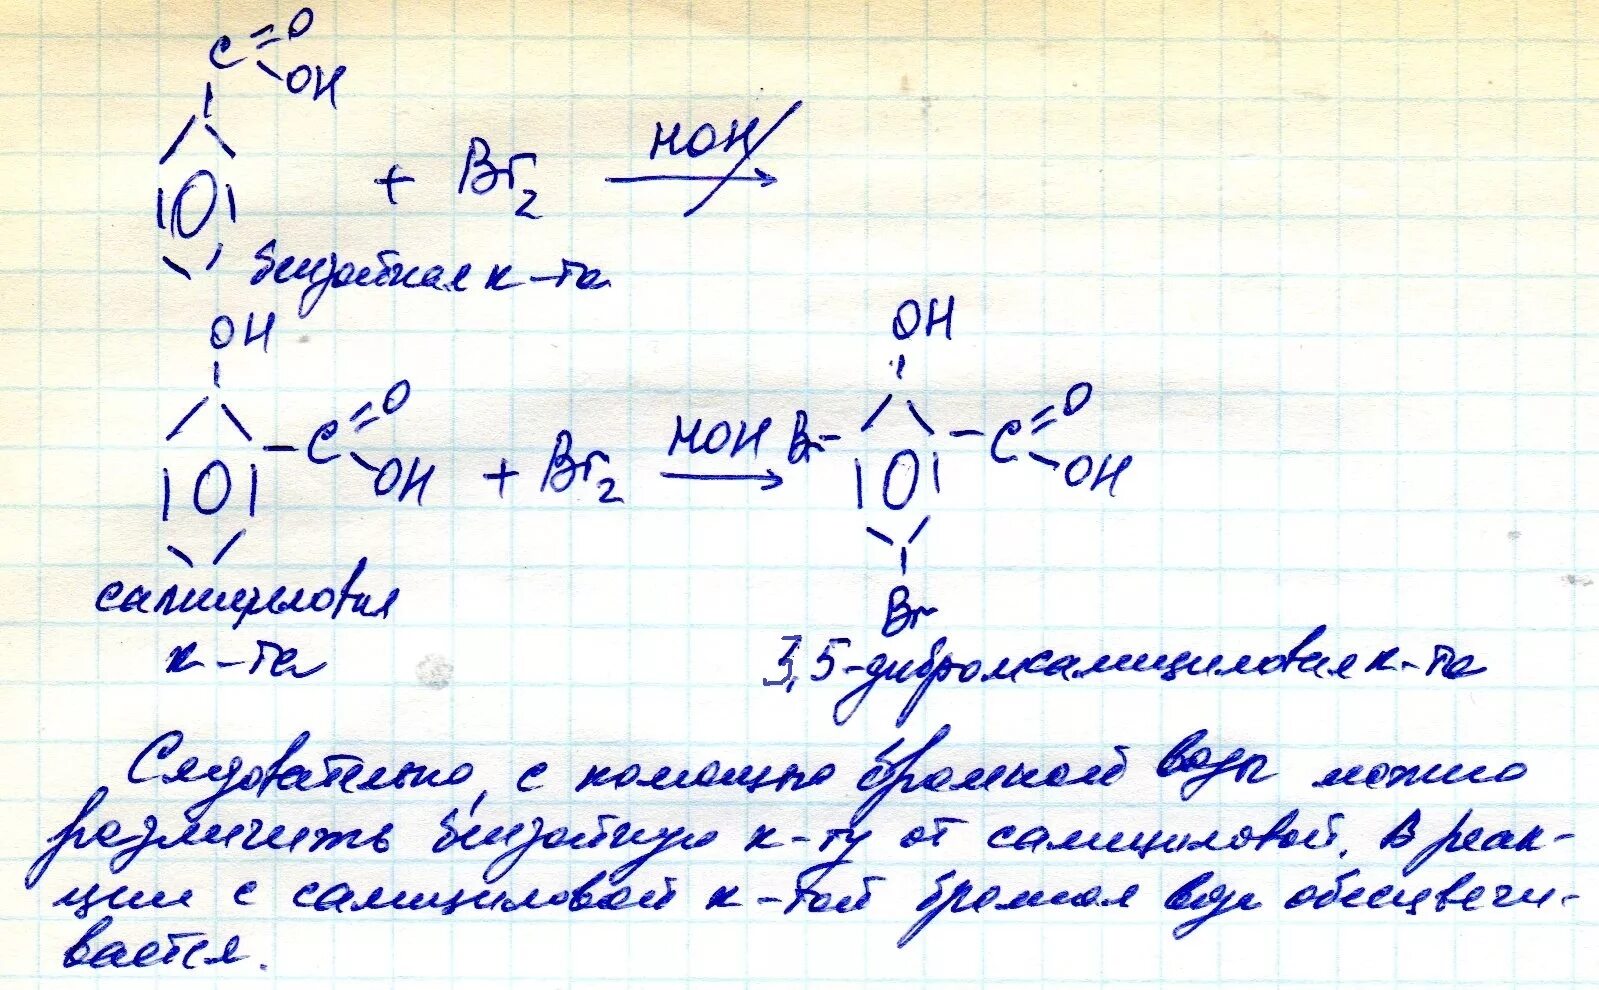 C=O
OH
+ Br2 HOH
бензойная к-та
OH
C=O
OH
+ Br2 HOH
OH
Br
C=O
OH
Br
салициловая
к-та
3,5-дибромсалициловая к-та
Следовательно, с помощью бромной воды можно
различить бензойную к-ту от салициловой. В реак-
ции с салициловой к-той бромная вода обесцвечи-
вается.